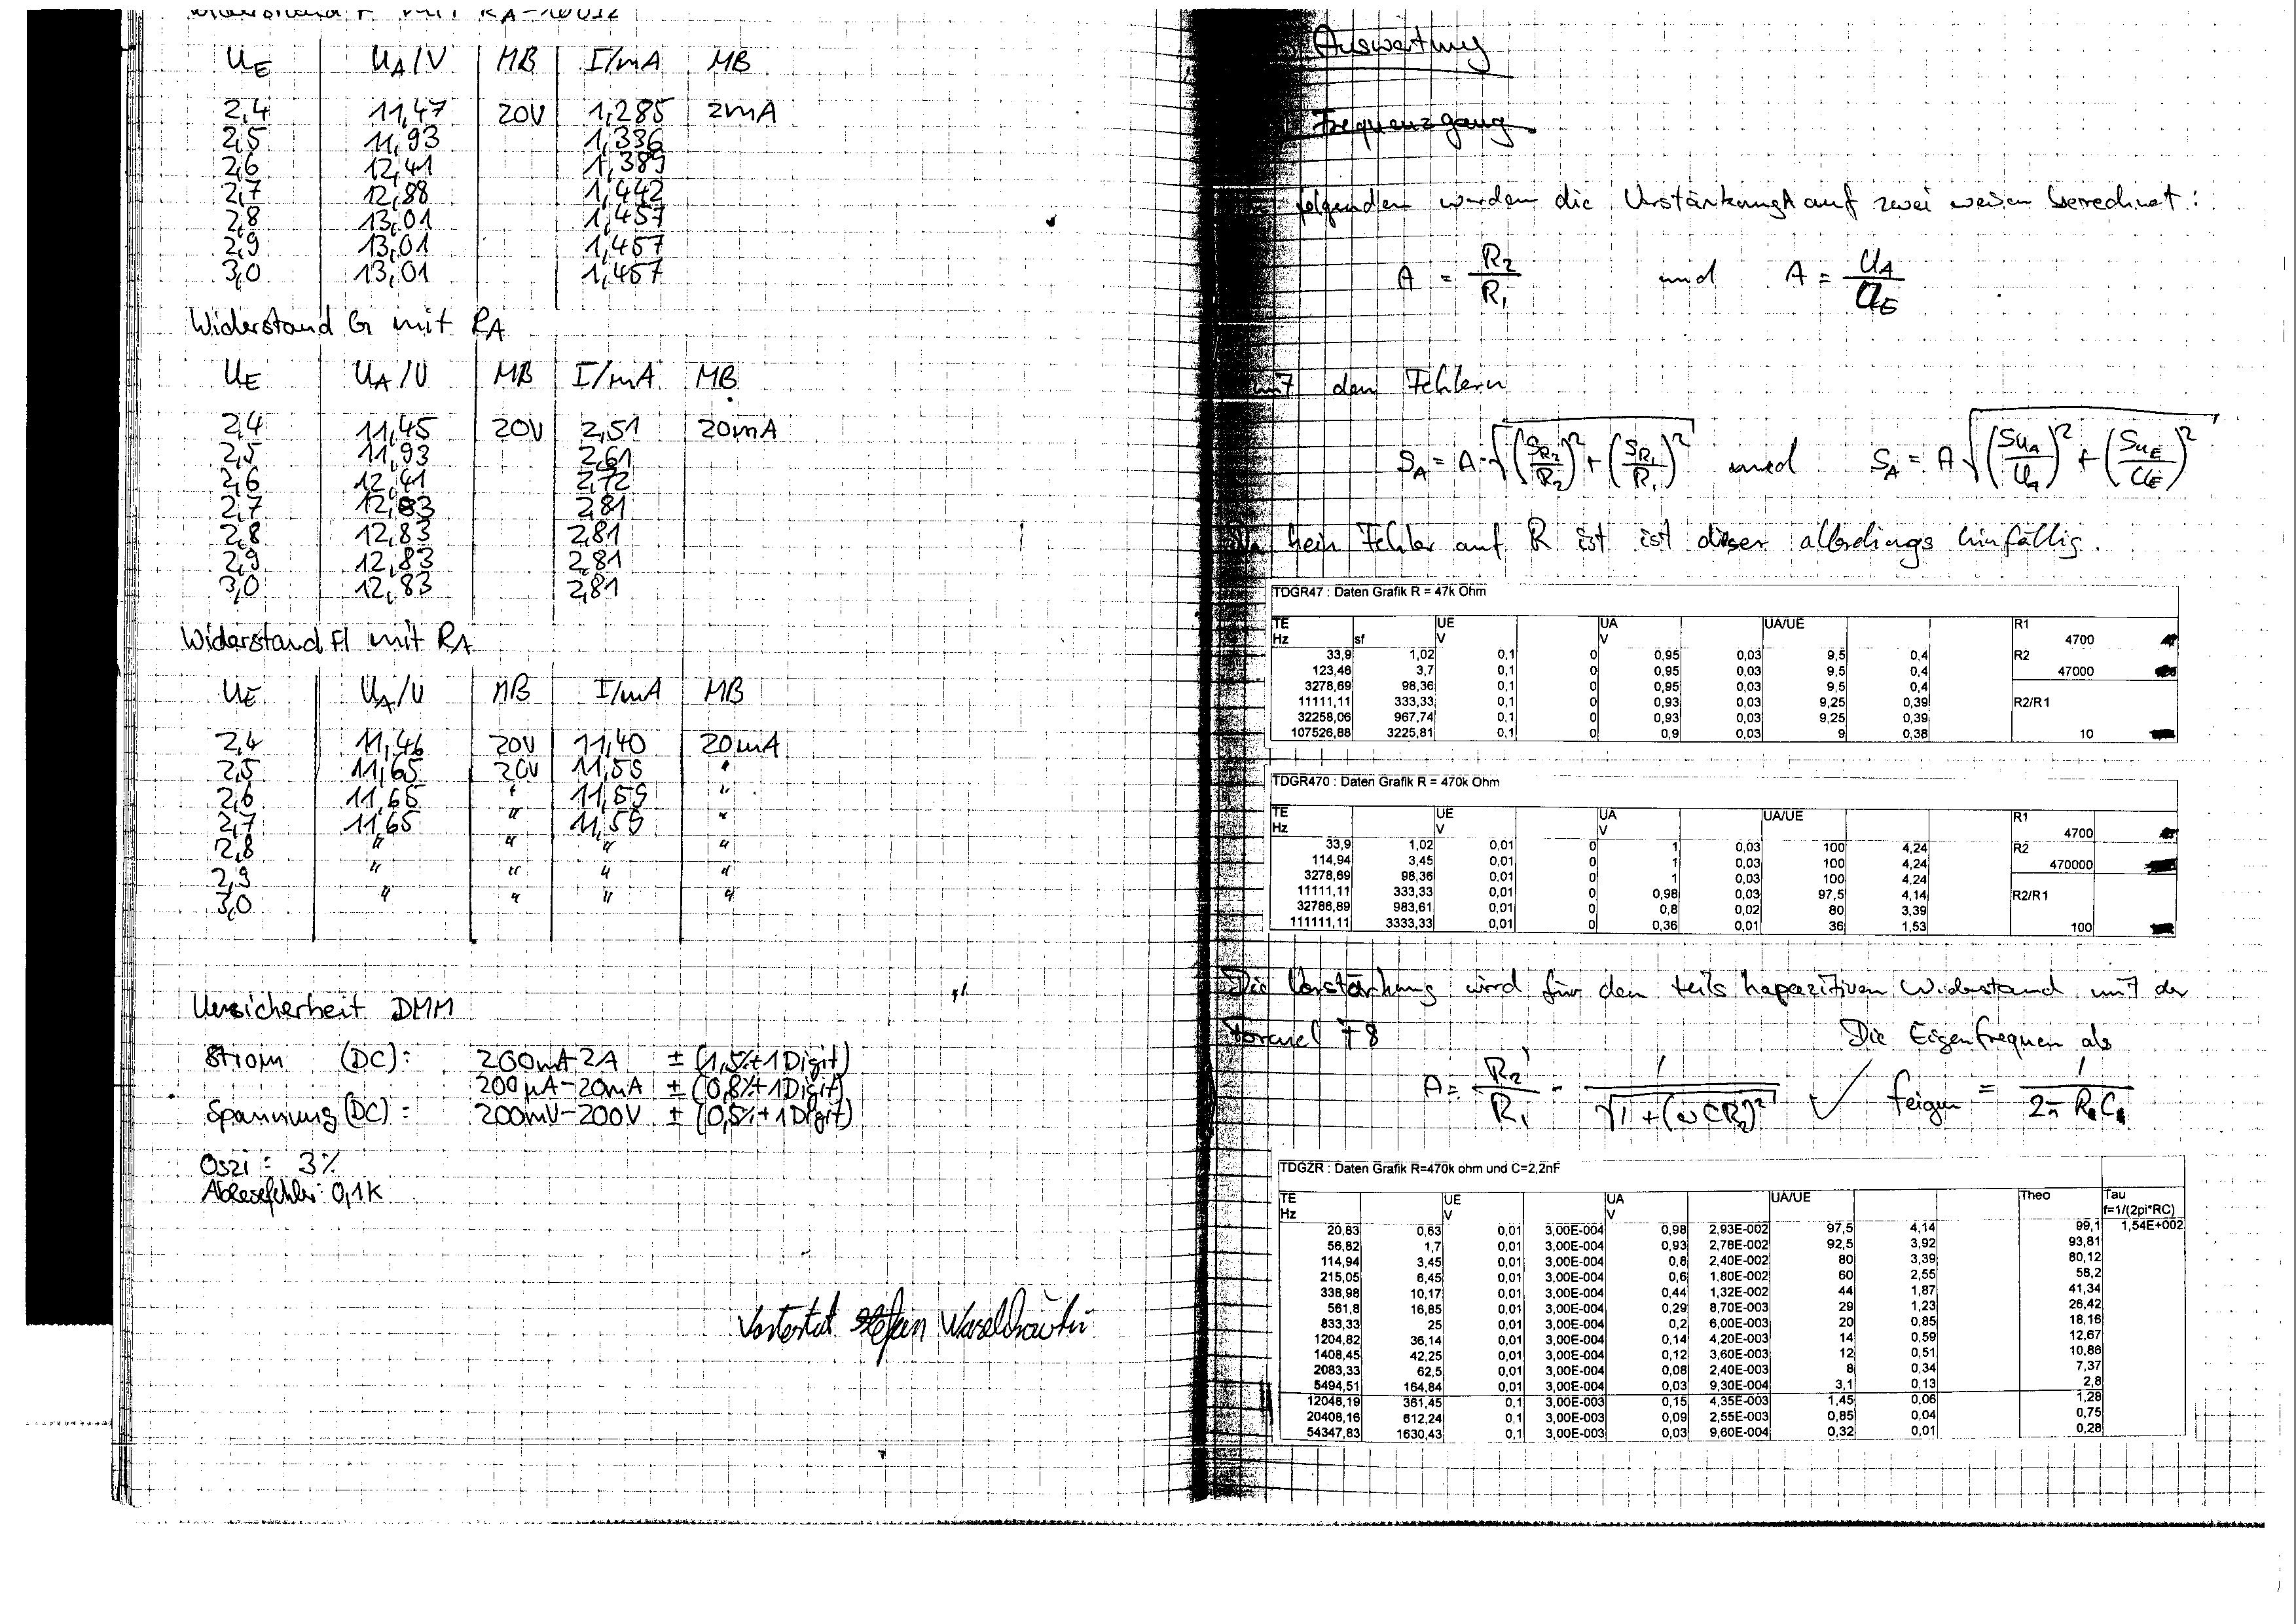 Widerstand F mit RA=
UE UA/V MB I/mA MB
2,4 11,47 20V 1,285 2mA
2,5 11,93 1,336
2,6 12,41 1,389
2,7 12,88 1,442
2,8 13,01 1,457
2,9 13,01 1,457
3,0 13,01 1,457
Widerstand G mit RA
UE UA/V MB I/mA MB
2,4 11,45 20V 2,51 20mA
2,5 11,93 2,61
2,6 12,41 2,72
2,7 12,83 2,81
2,8 12,83 2,81
2,9 12,83 2,81
3,0 12,83 2,81
Widerstand H mit RA
UE UA/V MB I/mA MB
2,4 11,46 20V 11,40 20mA
2,5 11,65 20V 11,59 "
2,6 11,65 " 11,59 "
2,7 11,65 " 11,59 "
2,8 " " " "
2,9 " " " "
3,0 " " " "
Unsicherheit DMM
Strom (DC): 200mA-2A ± (1,5%+1Digit)
200µA-20mA ± (0,8%+1Digit)
Spannung (DC): 200mV-200V ± (0,5%+1Digit)
Oszi: 3%
Ablesefehler: 0,1K
Vortestat Stefan
Auswertung
Frequenzgang
folgenden werden die Verstärkung A auf zwei weisen berechnet:
A = R2/R1 und A = UA/UE
mit den Fehlern
SA = A·√((SR2/R2)² + (SR1/R1)²) und SA = A√((SUA/UA)² + (SUE/UE)²)
Da kein Fehler auf R ist ist dieser allerdings hinfällig.
TDGR47 : Daten Grafik R = 47k Ohm
TE UE UA UA/UE R1
Hz sf V V 4700
33,9 1,02 0,1 0 0,95 0,03 9,5 0,4 R2
123,46 3,7 0,1 0 0,95 0,03 9,5 0,4 47000
3278,69 98,36 0,1 0 0,95 0,03 9,5 0,4
11111,11 333,33 0,1 0 0,93 0,03 9,25 0,39 R2/R1
32258,06 967,74 0,1 0 0,93 0,03 9,25 0,39
107526,88 3225,81 0,1 0 0,9 0,03 9 0,38 10
TDGR470 : Daten Grafik R = 470k Ohm
TE UE UA UA/UE R1
Hz V V 4700
33,9 1,02 0,01 0 1 0,03 100 4,24 R2
114,94 3,45 0,01 0 1 0,03 100 4,24 470000
3278,69 98,36 0,01 0 1 0,03 100 4,24
11111,11 333,33 0,01 0 0,98 0,03 97,5 4,14 R2/R1
32786,89 983,61 0,01 0 0,8 0,02 80 3,39
111111,11 3333,33 0,01 0 0,36 0,01 36 1,53 100
Die Verstärkung wird für den teils kapazitiven Widerstand mit der
Formel F8 Die Eigenfrequen als
A = R2/R1 · 1/√(1+(ωCR2)²) ✓ feigen = 1/2π
TDGZR : Daten Grafik R=470k ohm und C=2,2nF
TE UE UA UA/UE Theo Tau
Hz V V f=1/(2pi*RC)
20,83 0,63 0,01 3,00E-004 0,98 2,93E-002 97,5 4,14 99,1 1,54E+002
56,82 1,7 0,01 3,00E-004 0,93 2,78E-002 92,5 3,92 93,81
114,94 3,45 0,01 3,00E-004 0,8 2,40E-002 80 3,39 80,12
215,05 6,45 0,01 3,00E-004 0,6 1,80E-002 60 2,55 58,2
338,98 10,17 0,01 3,00E-004 0,44 1,32E-002 44 1,87 41,34
561,8 16,85 0,01 3,00E-004 0,29 8,70E-003 29 1,23 26,42
833,33 25 0,01 3,00E-004 0,2 6,00E-003 20 0,85 18,16
1204,82 36,14 0,01 3,00E-004 0,14 4,20E-003 14 0,59 12,67
1408,45 42,25 0,01 3,00E-004 0,12 3,60E-003 12 0,51 10,86
2083,33 62,5 0,01 3,00E-004 0,08 2,40E-003 8 0,34 7,37
5494,51 164,84 0,01 3,00E-004 0,03 9,30E-004 3,1 0,13 2,8
12048,19 361,45 0,1 3,00E-003 0,15 4,35E-003 1,45 0,06 1,28
20408,16 612,24 0,1 3,00E-003 0,09 2,55E-003 0,85 0,04 0,75
54347,83 1630,43 0,1 3,00E-003 0,03 9,60E-004 0,32 0,01 0,28